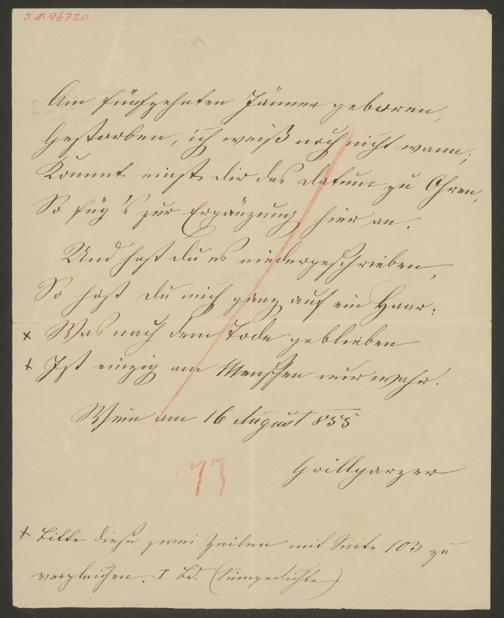 I.N. 96720
Am fünfzehnten Jänner geboren,
Gestorben, ich weiß noch nicht wann;
Kommt einst dir das Datum zu Ohren,
So füg's zur Ergänzung hier an.
Und hast du es niedergeschrieben,
So hast du mich ganz auf ein Haar:
x Was nach dem Tode geblieben
x Ist einzig am Menschen nur wahr.
Wien am 16 August 855
77
Grillparzer
x Bitte diese zwei Zeilen mit Seite 103 zu
vergleichen. I Bd. (Sinngedichte)